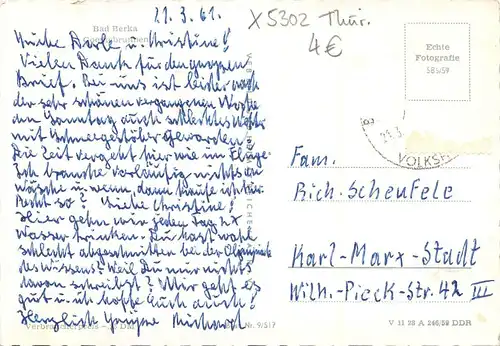 21.3.61.
X5302 Thür.
4€
Bad Berka
Goethebrunnen
Echte
Fotografie
585/59
Liebe Karle u. Christine!
Vielen Dank für den grossen
Brief. Bei uns ist leider nach
der sehr schönen vergangenen Woche
am Sonntag auch schlechtes Wetter
mit Schneegestöber geworden.
Die Zeit vergeht hier wie im Fluge.
Ich brauche vorläufig nichts an
Wäsche u. wenn, dann kaufe ich hier.
Recht so? Liebe Christine!
Hier gehn wir jeden Tag
Wasser trinken. Du hast wohl
schlecht abgeschnitten bei der Olympiade
des Wissens? Weil Du mir nichts
davon schreibst? Mir geht es
gut u. ich hoffe Euch auch!
Herzlich Grüsse
VOLKSP
Fam.
Rich. Scheufele
Karl-Marx-Stadt
Wilh.-Pieck-Str. 42 III
Verbraucherpreis
Nr. 9/517
V 11 28 A 246/59 DDR